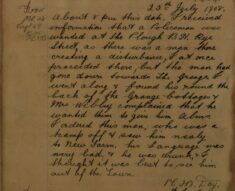 23rd July 1908.
About 4 pm this day, I received
information that a Policeman was
wanted at the Plough P.H. Rye
Street, as there was a man there
creating a disturbance, I at once
proceeded there, but the man had
gone down towards the Grange I
went along & found him round the
back of the Grange Cottages &
Mrs Wibby complained that he
wanted him to give him Alms
I ordered this man, who was a
tramp off & saw him nearly
to New Farm, his language was
very bad, & he was drunk, I
thought it was best to see him
out of the Town.
P.C. Day.